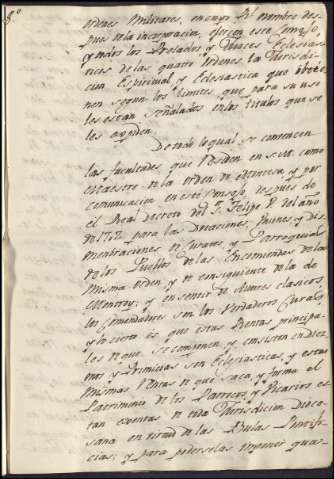 5º
ordenes Militares, en cuyo Rl nombre des-
pues de la incorporacion, ejercen este Consejo,
y todos los Prelados y Jueces Eclesias-
ticos de las quatro ordenes la Jurisdi-
cion Espiritual y Eclesiastica que obtie-
nen segun los limites que para su uso
les estan Señalados en los titulos que se
les expiden.
De todo lo qual se convencen
las facultades que residen en S. M. como
Maestre de la orden de Montesa, y por
comunicacion en este Consejo, despues de
el Real decreto del S. Felipe V. del año
de 1702 para las Dotaciones, Uniones y Dis-
membraciones de Curatos y Parroquias
de los Pueblos de las Encomiendas de la
misma orden, y de consiguiente de la de
Montroy; y en sentir de Autores clasicos,
los Comendadores son los verdaderos Curas,
y lo cierto es que estas Rentas principa-
les de que se componen, y consisten en Diez-
mos y Primicias son Eclesiasticas, y estas
mismas Rentas de que saca, y forma el
Patrimonio de los Parrocos, y Vicarios es-
tan exentas de toda Jurisdicion Dioce-
sana en virtud de las Bulas Pontifi-
cias; y para poterselas imponer qual-